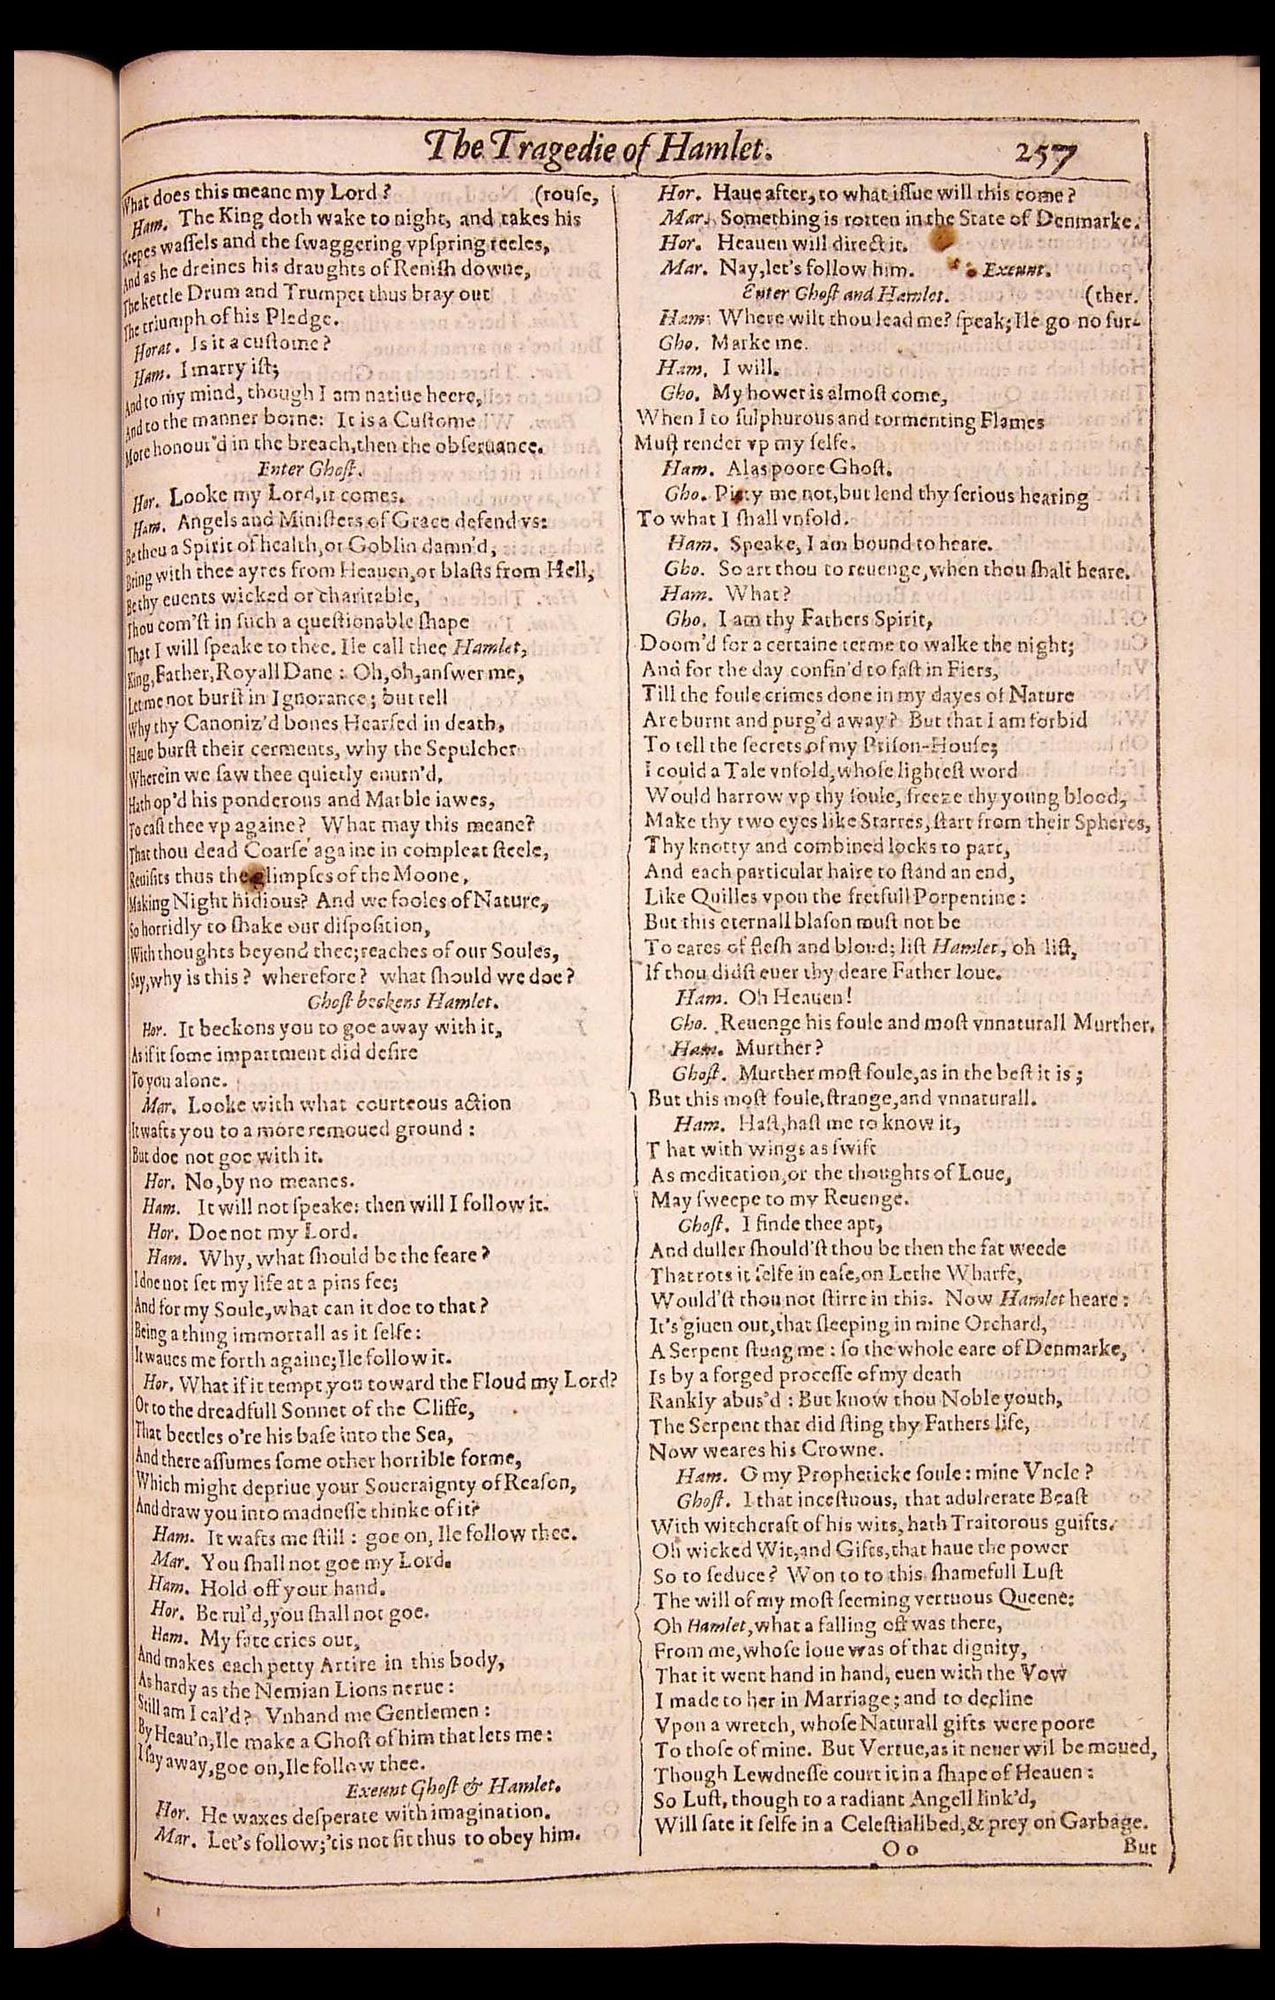 The Tragedie of Hamlet. 257
What does this meane my Lord? (rouſe,
Ham. The King doth wake to night, and takes his
Keepes waſſels and the ſwaggering vpſpring reeles,
And as he dreines his draughts of Reniſh downe,
The kettle Drum and Trumpet thus bray out
The triumph of his Pledge.
Horat. Is it a cuſtome?
Ham. I marry iſt;
And to my mind, though I am natiue heere,
And to the manner borne: It is a Cuſtome
More honour'd in the breach, then the obſeruance.
Enter Ghoſt.
Hor. Looke my Lord, it comes.
Ham. Angels and Miniſters of Grace defend vs:
Be thou a Spirit of health, or Goblin damn'd,
Bring with thee ayres from Heauen, or blaſts from Hell,
Be thy euents wicked or charitable,
Thou com'ſt in ſuch a queſtionable ſhape
That I will ſpeake to thee. Ile call thee Hamlet,
King, Father, Royall Dane: Oh, oh, anſwer me,
Let me not burſt in Ignorance; but tell
Why thy Canoniz'd bones Hearſed in death,
Haue burſt their cerments, why the Sepulcher
Wherein we ſaw thee quietly enurn'd,
Hath op'd his ponderous and Marble iawes,
To caſt thee vp againe? What may this meane?
That thou dead Coarſe againe in compleat ſteele,
Reuiſits thus the glimpſes of the Moone,
Making Night hidious? And we fooles of Nature,
So horridly to ſhake our diſpoſition,
With thoughts beyond thee; reaches of our Soules,
Say, why is this? wherefore? what ſhould we doe?
Ghoſt beckens Hamlet.
Hor. It beckons you to goe away with it,
As if it ſome impartment did deſire
To you alone.
Mar. Looke with what courteous action
It wafts you to a more remoued ground:
But doe not goe with it.
Hor. No, by no meanes.
Ham. It will not ſpeake: then will I follow it.
Hor. Doe not my Lord.
Ham. Why, what ſhould be the feare?
I doe not ſet my life at a pins fee;
And for my Soule, what can it doe to that?
Being a thing immortall as it ſelfe:
It waues me forth againe; Ile follow it.
Hor. What if it tempt you toward the Floud my Lord?
Or to the dreadfull Sonnet of the Cliffe,
That beetles o're his baſe into the Sea,
And there aſſumes ſome other horrible forme,
Which might depriue your Soueraignty of Reaſon,
And draw you into madneſſe thinke of it?
Ham. It wafts me ſtill: goe on, Ile follow thee.
Mar. You ſhall not goe my Lord.
Ham. Hold off your hand.
Hor. Be rul'd, you ſhall not goe.
Ham. My fate cries out,
And makes each petty Artire in this body,
As hardy as the Nemian Lions nerue:
Still am I cal'd? Vnhand me Gentlemen:
By Heau'n, Ile make a Ghoſt of him that lets me:
I ſay away, goe on, Ile follow thee.
Exeunt Ghoſt & Hamlet.
Hor. He waxes deſperate with imagination.
Mar. Let's follow; 'tis not fit thus to obey him.
Hor. Haue after, to what iſſue will this come?
Mar. Something is rotten in the State of Denmarke.
Hor. Heauen will direct it.
Mar. Nay, let's follow him. Exeunt.
Enter Ghoſt and Hamlet. (ther.
Ham. Where wilt thou lead me? ſpeak; Ile go no fur-
Gho. Marke me.
Ham. I will.
Gho. My hower is almoſt come,
When I to ſulphurous and tormenting Flames
Muſt render vp my ſelfe.
Ham. Alas poore Ghoſt.
Gho. Pitty me not, but lend thy ſerious hearing
To what I ſhall vnfold.
Ham. Speake, I am bound to heare.
Gho. So art thou to reuenge, when thou ſhalt heare.
Ham. What?
Gho. I am thy Fathers Spirit,
Doom'd for a certaine terme to walke the night;
And for the day confin'd to faſt in Fiers,
Till the foule crimes done in my dayes of Nature
Are burnt and purg'd away? But that I am forbid
To tell the ſecrets of my Priſon-Houſe;
I could a Tale vnfold, whoſe lighteſt word
Would harrow vp thy ſoule, freeze thy young blood,
Make thy two eyes like Starres, ſtart from their Spheres,
Thy knotty and combined locks to part,
And each particular haire to ſtand an end,
Like Quilles vpon the fretfull Porpentine:
But this eternall blaſon muſt not be
To eares of fleſh and bloud; liſt Hamlet, oh liſt,
If thou didſt euer thy deare Father loue.
Ham. Oh Heauen!
Gho. Reuenge his foule and moſt vnnaturall Murther.
Ham. Murther?
Ghoſt. Murther moſt foule, as in the beſt it is;
But this moſt foule, ſtrange, and vnnaturall.
Ham. Haſt, haſt me to know it,
That with wings as ſwift
As meditation, or the thoughts of Loue,
May ſweepe to my Reuenge.
Ghoſt. I finde thee apt,
And duller ſhould'ſt thou be then the fat weede
That rots it ſelfe in eaſe, on Lethe Wharfe,
Would'ſt thou not ſtirre in this. Now Hamlet heare:
It's giuen out, that ſleeping in mine Orchard,
A Serpent ſtung me: ſo the whole eare of Denmarke,
Is by a forged proceſſe of my death
Rankly abus'd: But know thou Noble youth,
The Serpent that did ſting thy Fathers life,
Now weares his Crowne.
Ham. O my Propheticke ſoule: mine Vncle?
Ghoſt. I that inceſtuous, that adulterate Beaſt
With witchcraft of his wits, hath Traitorous guifts.
Oh wicked Wit, and Gifts, that haue the power
So to ſeduce? Won to to this ſhamefull Luſt
The will of my moſt ſeeming vertuous Queene:
Oh Hamlet, what a falling off was there,
From me, whoſe loue was of that dignity,
That it went hand in hand, euen with the Vow
I made to her in Marriage; and to decline
Vpon a wretch, whoſe Naturall gifts were poore
To thoſe of mine. But Vertue, as it neuer wil be moued,
Though Lewdneſſe court it in a ſhape of Heauen:
So Luſt, though to a radiant Angell link'd,
Will ſate it ſelfe in a Celeſtiall bed, & prey on Garbage.
O o But